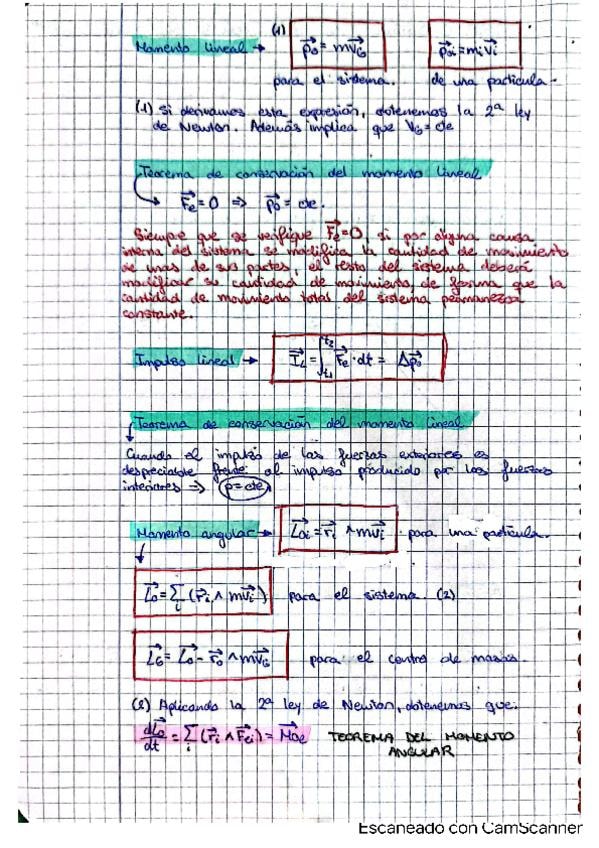 (1)
Momento lineal → p₀ = mv_G   p₀ᵢ = mᵢvᵢ
para el sistema.   de una partícula.
(1) Si derivamos esta expresión, obtenemos la 2ª ley
de Newton. Además implica que V_G = cte
Teorema de conservación del momento lineal
F_e = 0 ⇒ p₀ = cte.
Siempre que se verifique F_e = 0, si por alguna causa
interna del sistema se modifica la cantidad de movimiento
de unas de sus partes, el resto del sistema deberá
modificar su cantidad de movimiento, de forma que la
cantidad de movimiento total del sistema permanezca
constante.
Impulso lineal → I_L = ∫_{t₁}^{t₂} F_e · dt = Δp₀
Teorema de conservación del momento lineal
Cuando el impulso de las fuerzas exteriores es
despreciable frente al impulso producido por las fuerzas
interiores ⇒ p = cte
Momento angular → L₀ᵢ = rᵢ ∧ mvᵢ para una partícula.
L₀ = Σᵢ (rᵢ ∧ mvᵢ) para el sistema. (2)
L_G = L₀ - r₀ ∧ mv_G para el centro de masas.
(2) Aplicando la 2ª ley de Newton, obtenemos que:
dL₀/dt = Σᵢ (rᵢ ∧ F_eᵢ) = M₀e TEOREMA DEL MOMENTO
ANGULAR
Escaneado con CamScanner